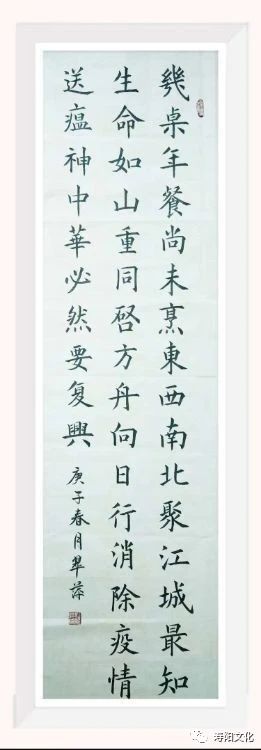 幾桌年餐尚未烹東西南北聚江城最知
生命如山重同啓方舟向日行消除疫情
送瘟神中華必然要复興
庚子春月翠萍
寿阳文化